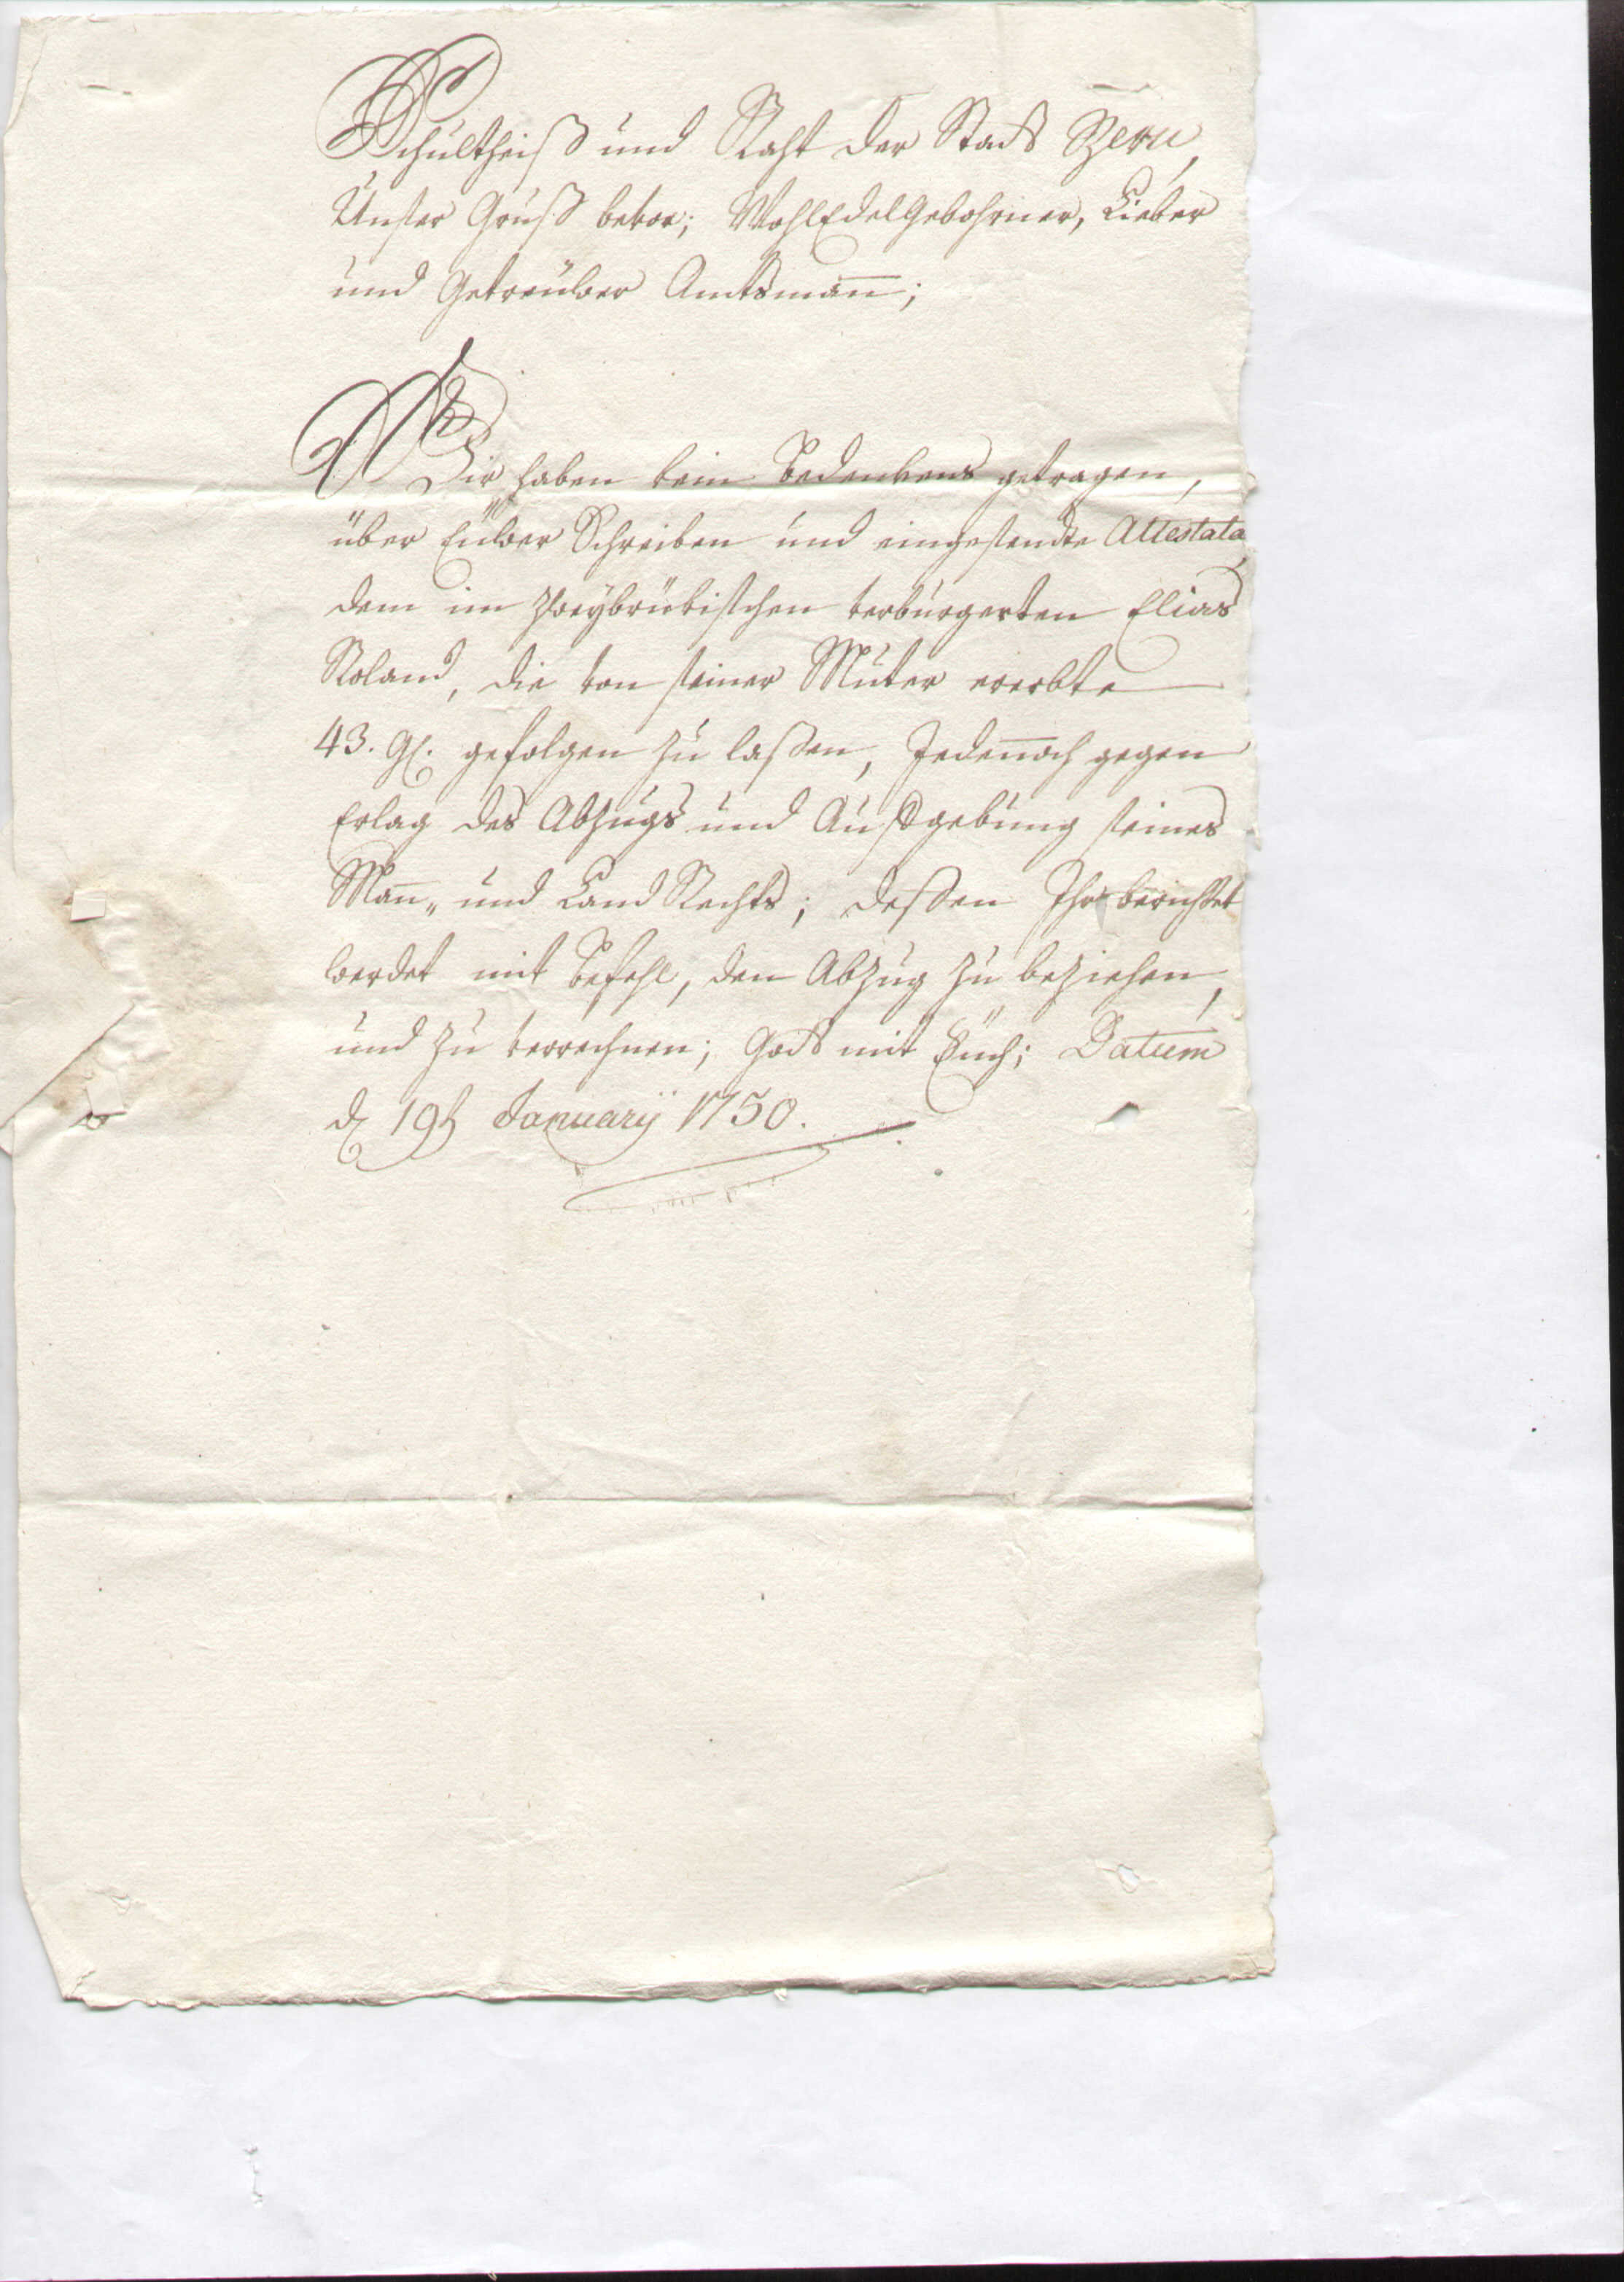 Schultheiß und Raht der Statt Bern,
Unser Gruß bevor; WohlEdelGebohrner, Lieber
und Getreüwer Amtsman̄;
Wir haben kein Bedenkens getragen,
über Eüwer Schreiben und eingesandte Attestata
dem im Zweÿbrükischen verburgerten Elias
Roland, die von seiner Muter ererbte
43. Gl. gefolgen zu laßen, Jeden̄och gegen
Erlag des Abzugs und Aufgebung seines
Man̄„ und Land Rechts; deßen Ihr berichtet
werdet mit Befehl, den Abzug zu beziehen,
und zu verrechnen; Gott mit Eüch; Datum
d. 19t. Januarÿ 1750.